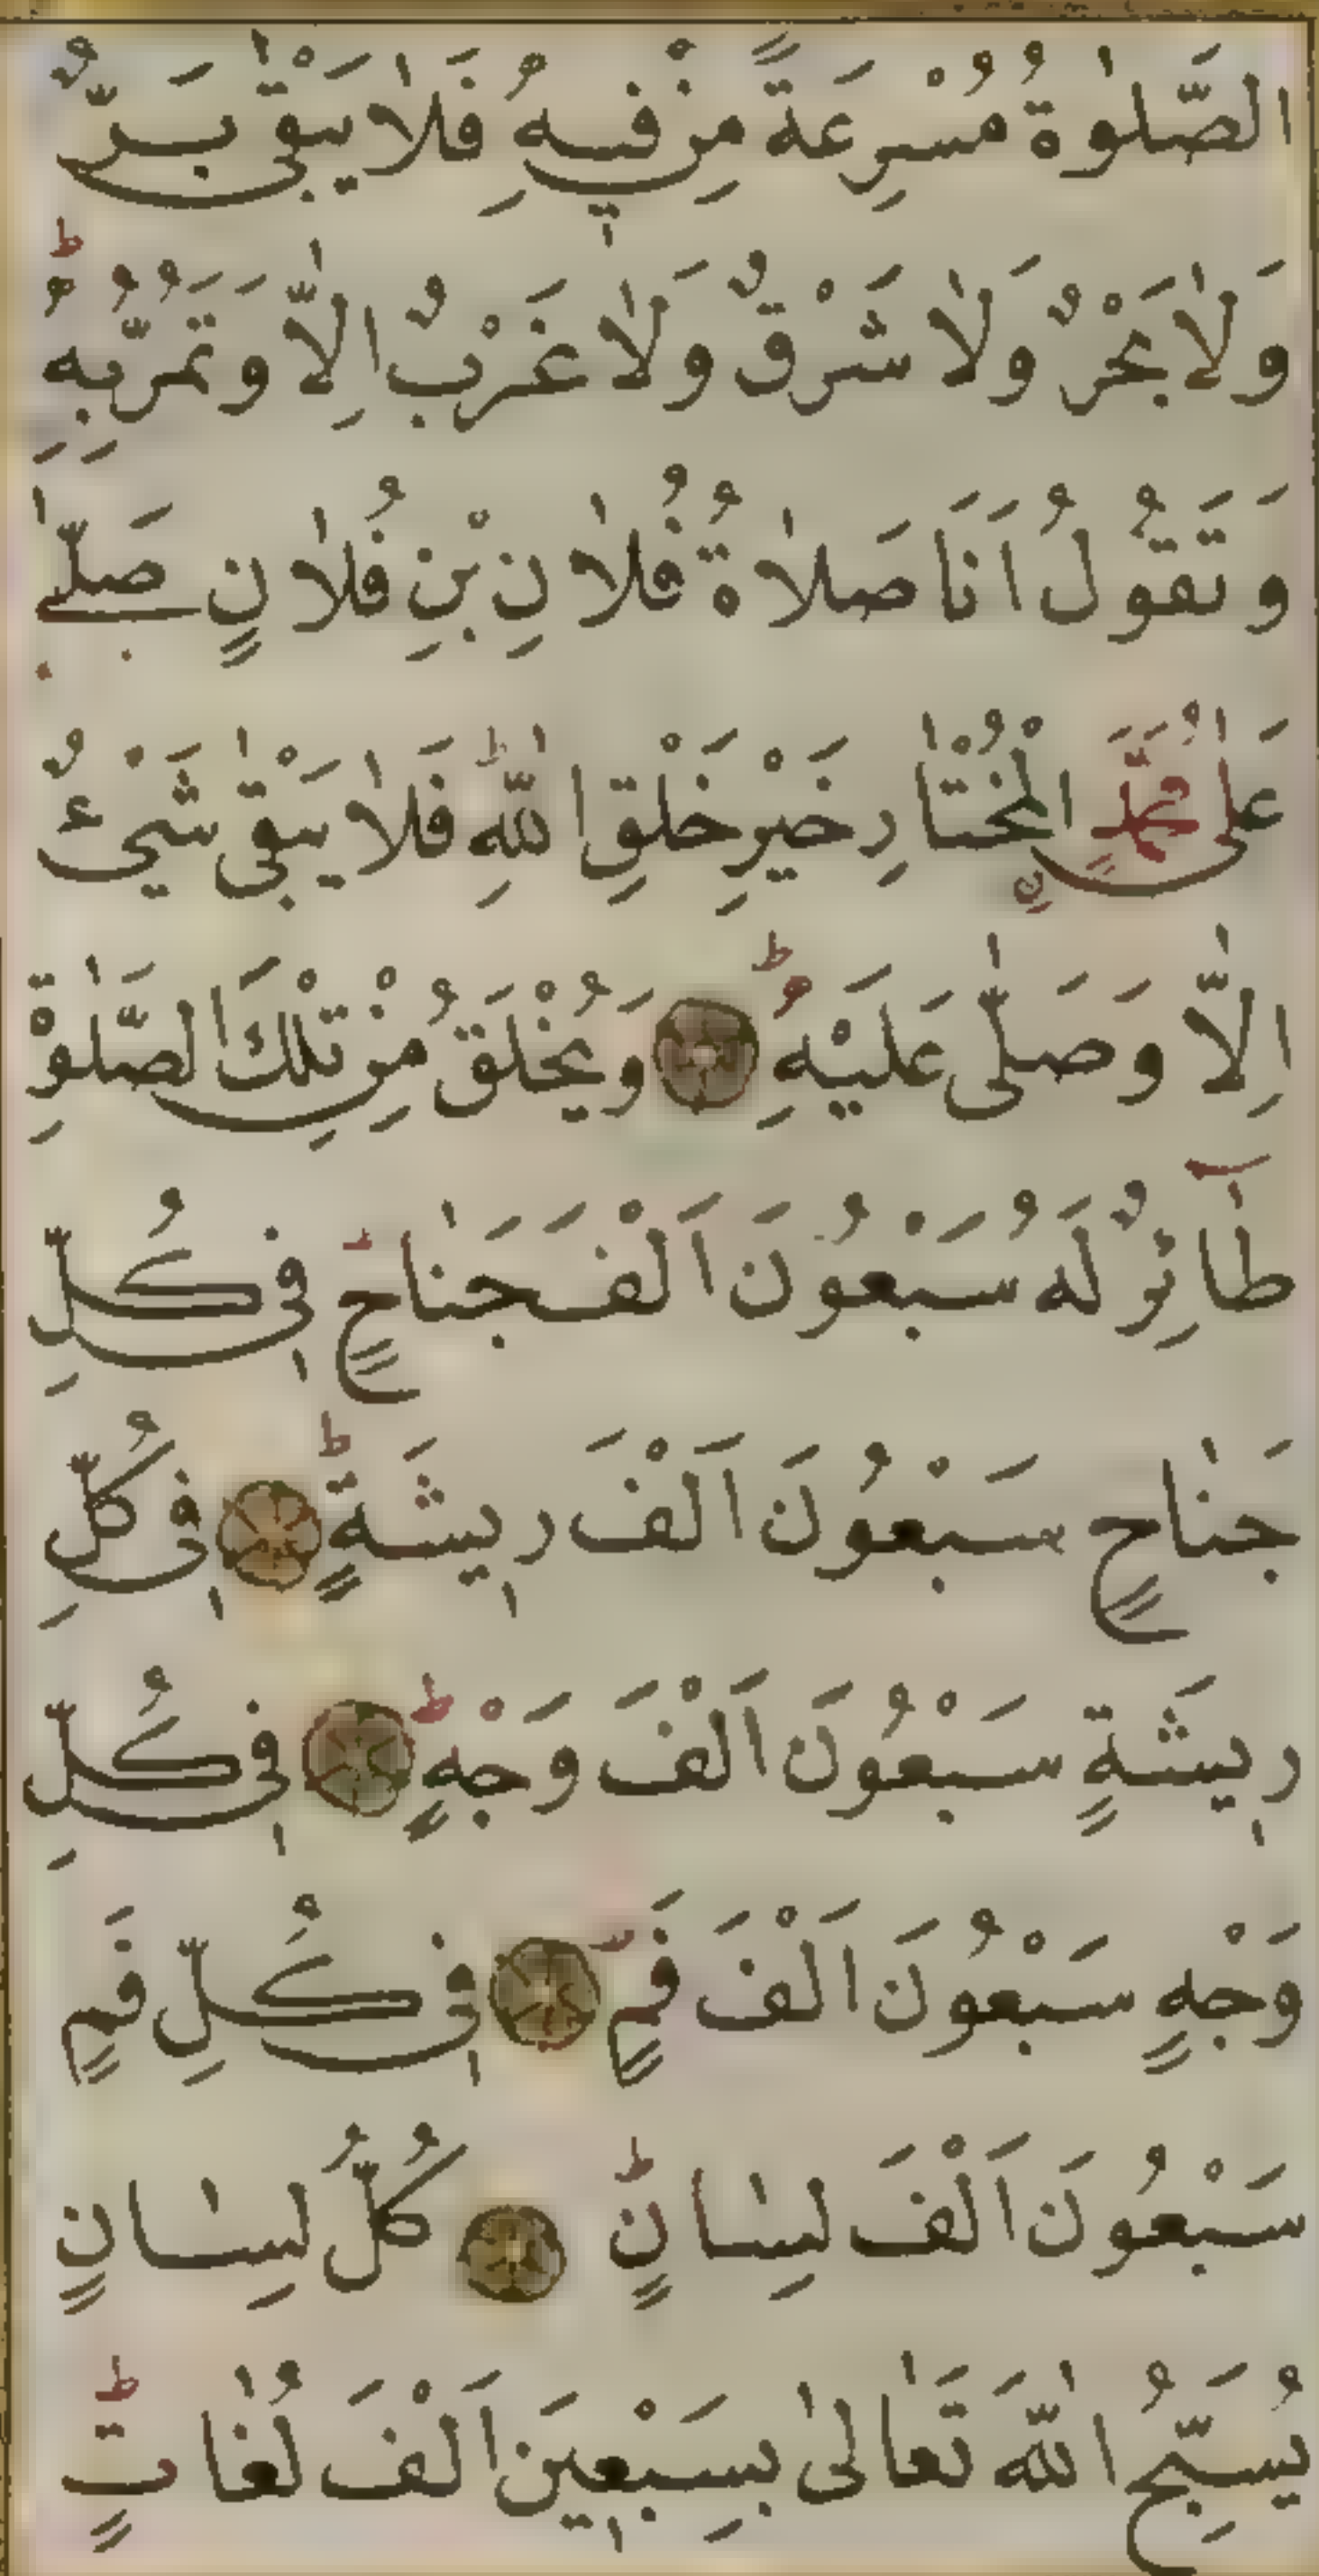 الصَّلٰوةُ مُسْرِعَةً مِنْ فِيهِ فَلاٰ يَبْقٰى بَرٌّ
وَلاٰ بَحْرٌ وَلاٰ شَرْقٌ وَلاٰ غَرْبٌ اِلاّٰ وَتَمُرُّ بِهِ ط
وَتَقُولُ اَنَا صَلاٰةُ فُلاٰنِ بْنِ فُلاٰنٍ صَلّٰى
عَلٰى مُحَمَّدٍ الْمُخْتٰارِ خَيْرِ خَلْقِ اللّٰهِ ط فَلاٰ يَبْقٰى شَيْءٌ
اِلاّٰ وَصَلّٰى عَلَيْهِ ط وَيُخْلَقُ مِنْ تِلْكَ الصَّلٰوةِ
طٰآئِرٌ لَهُ سَبْعُونَ اَلْفَ جَنٰاحٍ فِى كُلِّ
جَنٰاحٍ سَبْعُونَ اَلْفَ رِيشَةٍ ط فِى كُلِّ
رِيشَةٍ سَبْعُونَ اَلْفَ وَجْهٍ ط فِى كُلِّ
وَجْهٍ سَبْعُونَ اَلْفَ فَمٍ فِى كُلِّ فَمٍ
سَبْعُونَ اَلْفَ لِسٰانٍ ط كُلُّ لِسٰانٍ
يُسَبِّحُ اللّٰهَ تَعٰالٰى بِسَبْعِينَ اَلْفَ لُغٰاتٍ ط